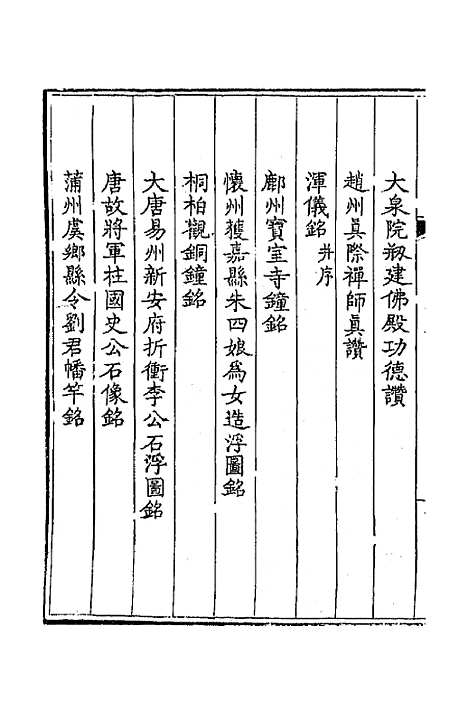 大泉院剏建佛殿功德讚
趙州真際禪師真讚
渾儀銘并序
鄜州寶室寺鐘銘
懷州獲嘉縣朱四娘爲女造浮圖銘
桐柏觀銅鐘銘
大唐易州新安府折衝李公石浮圖銘
唐故將軍柱國史公石像銘
蒲州虞鄉縣令劉君幡竿銘